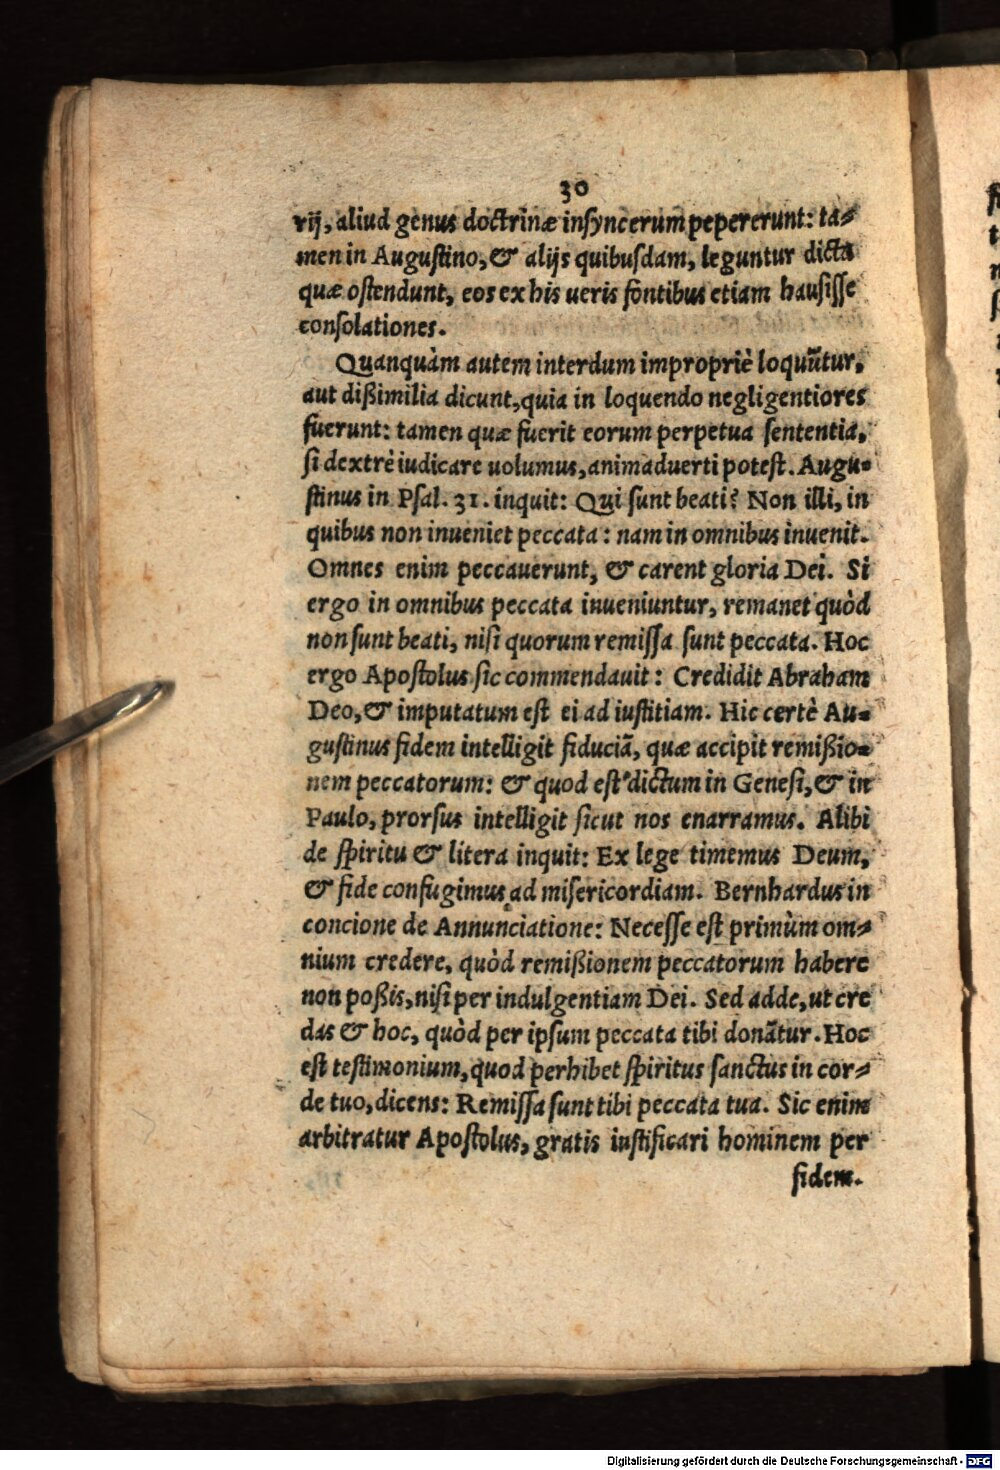 30
rij, aliud genus doctrinæ insyncerum pepererunt: ta-
men in Augustino, & alijs quibusdam, leguntur dicta
quæ ostendunt, eos ex his ueris fontibus etiam hausisse
consolationes.
Quanquàm autem interdum impropriè loquũtur,
aut dißimilia dicunt, quia in loquendo negligentiores
fuerunt: tamen quæ fuerit eorum perpetua sententia,
si dextrè iudicare uolumus, animaduerti potest. Augu-
stinus in Psal. 31. inquit: Qui sunt beati? Non illi, in
quibus non inueniet peccata: nam in omnibus inuenit.
Omnes enim peccauerunt, & carent gloria Dei. Si
ergo in omnibus peccata inueniuntur, remanet quòd
non sunt beati, nisi quorum remissa sunt peccata. Hoc
ergo Apostolus sic commendauit: Credidit Abraham
Deo, & imputatum est ei ad iustitiam. Hic certè Au-
gustinus fidem intelligit fiduciã, quæ accipit remißio-
nem peccatorum: & quod est dictum in Genesi, & in
Paulo, prorsus intelligit sicut nos enarramus. Alibi
de spiritu & litera inquit: Ex lege timemus Deum,
& fide confugimus ad misericordiam. Bernhardus in
concione de Annunciatione: Necesse est primùm om-
nium credere, quòd remißionem peccatorum habere
non poßis, nisi per indulgentiam Dei. Sed adde, ut cre
das & hoc, quòd per ipsum peccata tibi donãtur. Hoc
est testimonium, quod perhibet spiritus sanctus in cor-
de tuo, dicens: Remissa sunt tibi peccata tua. Sic enim
arbitratur Apostolus, gratis iustificari hominem per
fidem.
Digitalisierung gefördert durch die Deutsche Forschungsgemeinschaft - DFG